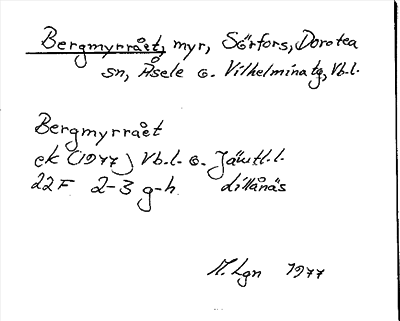 Bergmyrrået, myr, Sörfors, Dorotea
sn, Åsele o. Vilhelmina tg, Vb.l.
Bergmyrrået
ek (1977) Vb.l. o. Jämtl.l.
22F 2-3 g-h Lillånäs
M. Lgn 1977